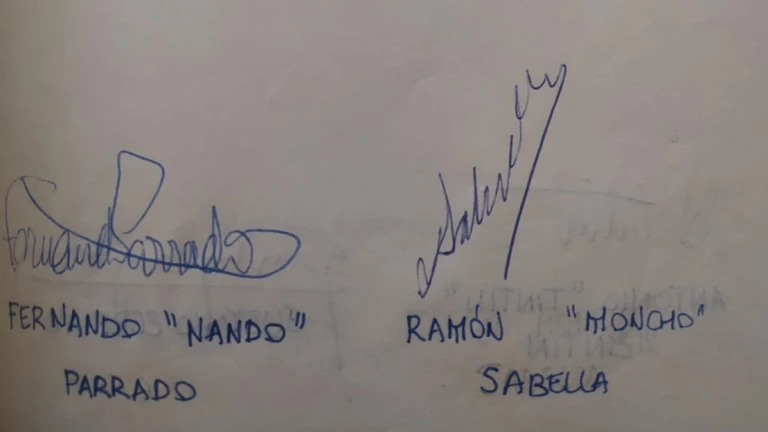 Fernando Parrado
Sabella
FERNANDO "NANDO"
PARRADO
RAMÓN "MONCHO"
SABELLA